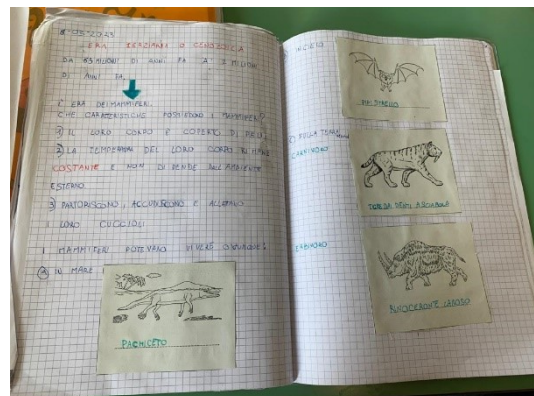 8-05-2023
ERA TERZIARIA O CENOZOICA
DA 65 MILIONI DI ANNI FA A 2 MILIONI
DI ANNI FA.
È ERA DEI MAMMIFERI.
CHE CARATTERISTICHE POSSIEDONO I MAMMIFERI?
1) IL LORO CORPO È COPERTO DI PELI.
2) LA TEMPERATURA DEL LORO CORPO RIMANE
COSTANTE E NON DIPENDE DALL'AMBIENTE
ESTERNO.
3) PARTORISCONO, ACCUDISCONO E ALLATTANO
I LORO CUCCIOLI
I MAMMIFERI POTEVANO VIVERE OVUNQUE:
IN MARE
PACHICETO
IN CIELO
PIPISTRELLO
SULLA TERRA
CARNIVORO
TIGRE DAI DENTI A SCIABOLA
ERBIVORO
RINOCERONTE LANOSO